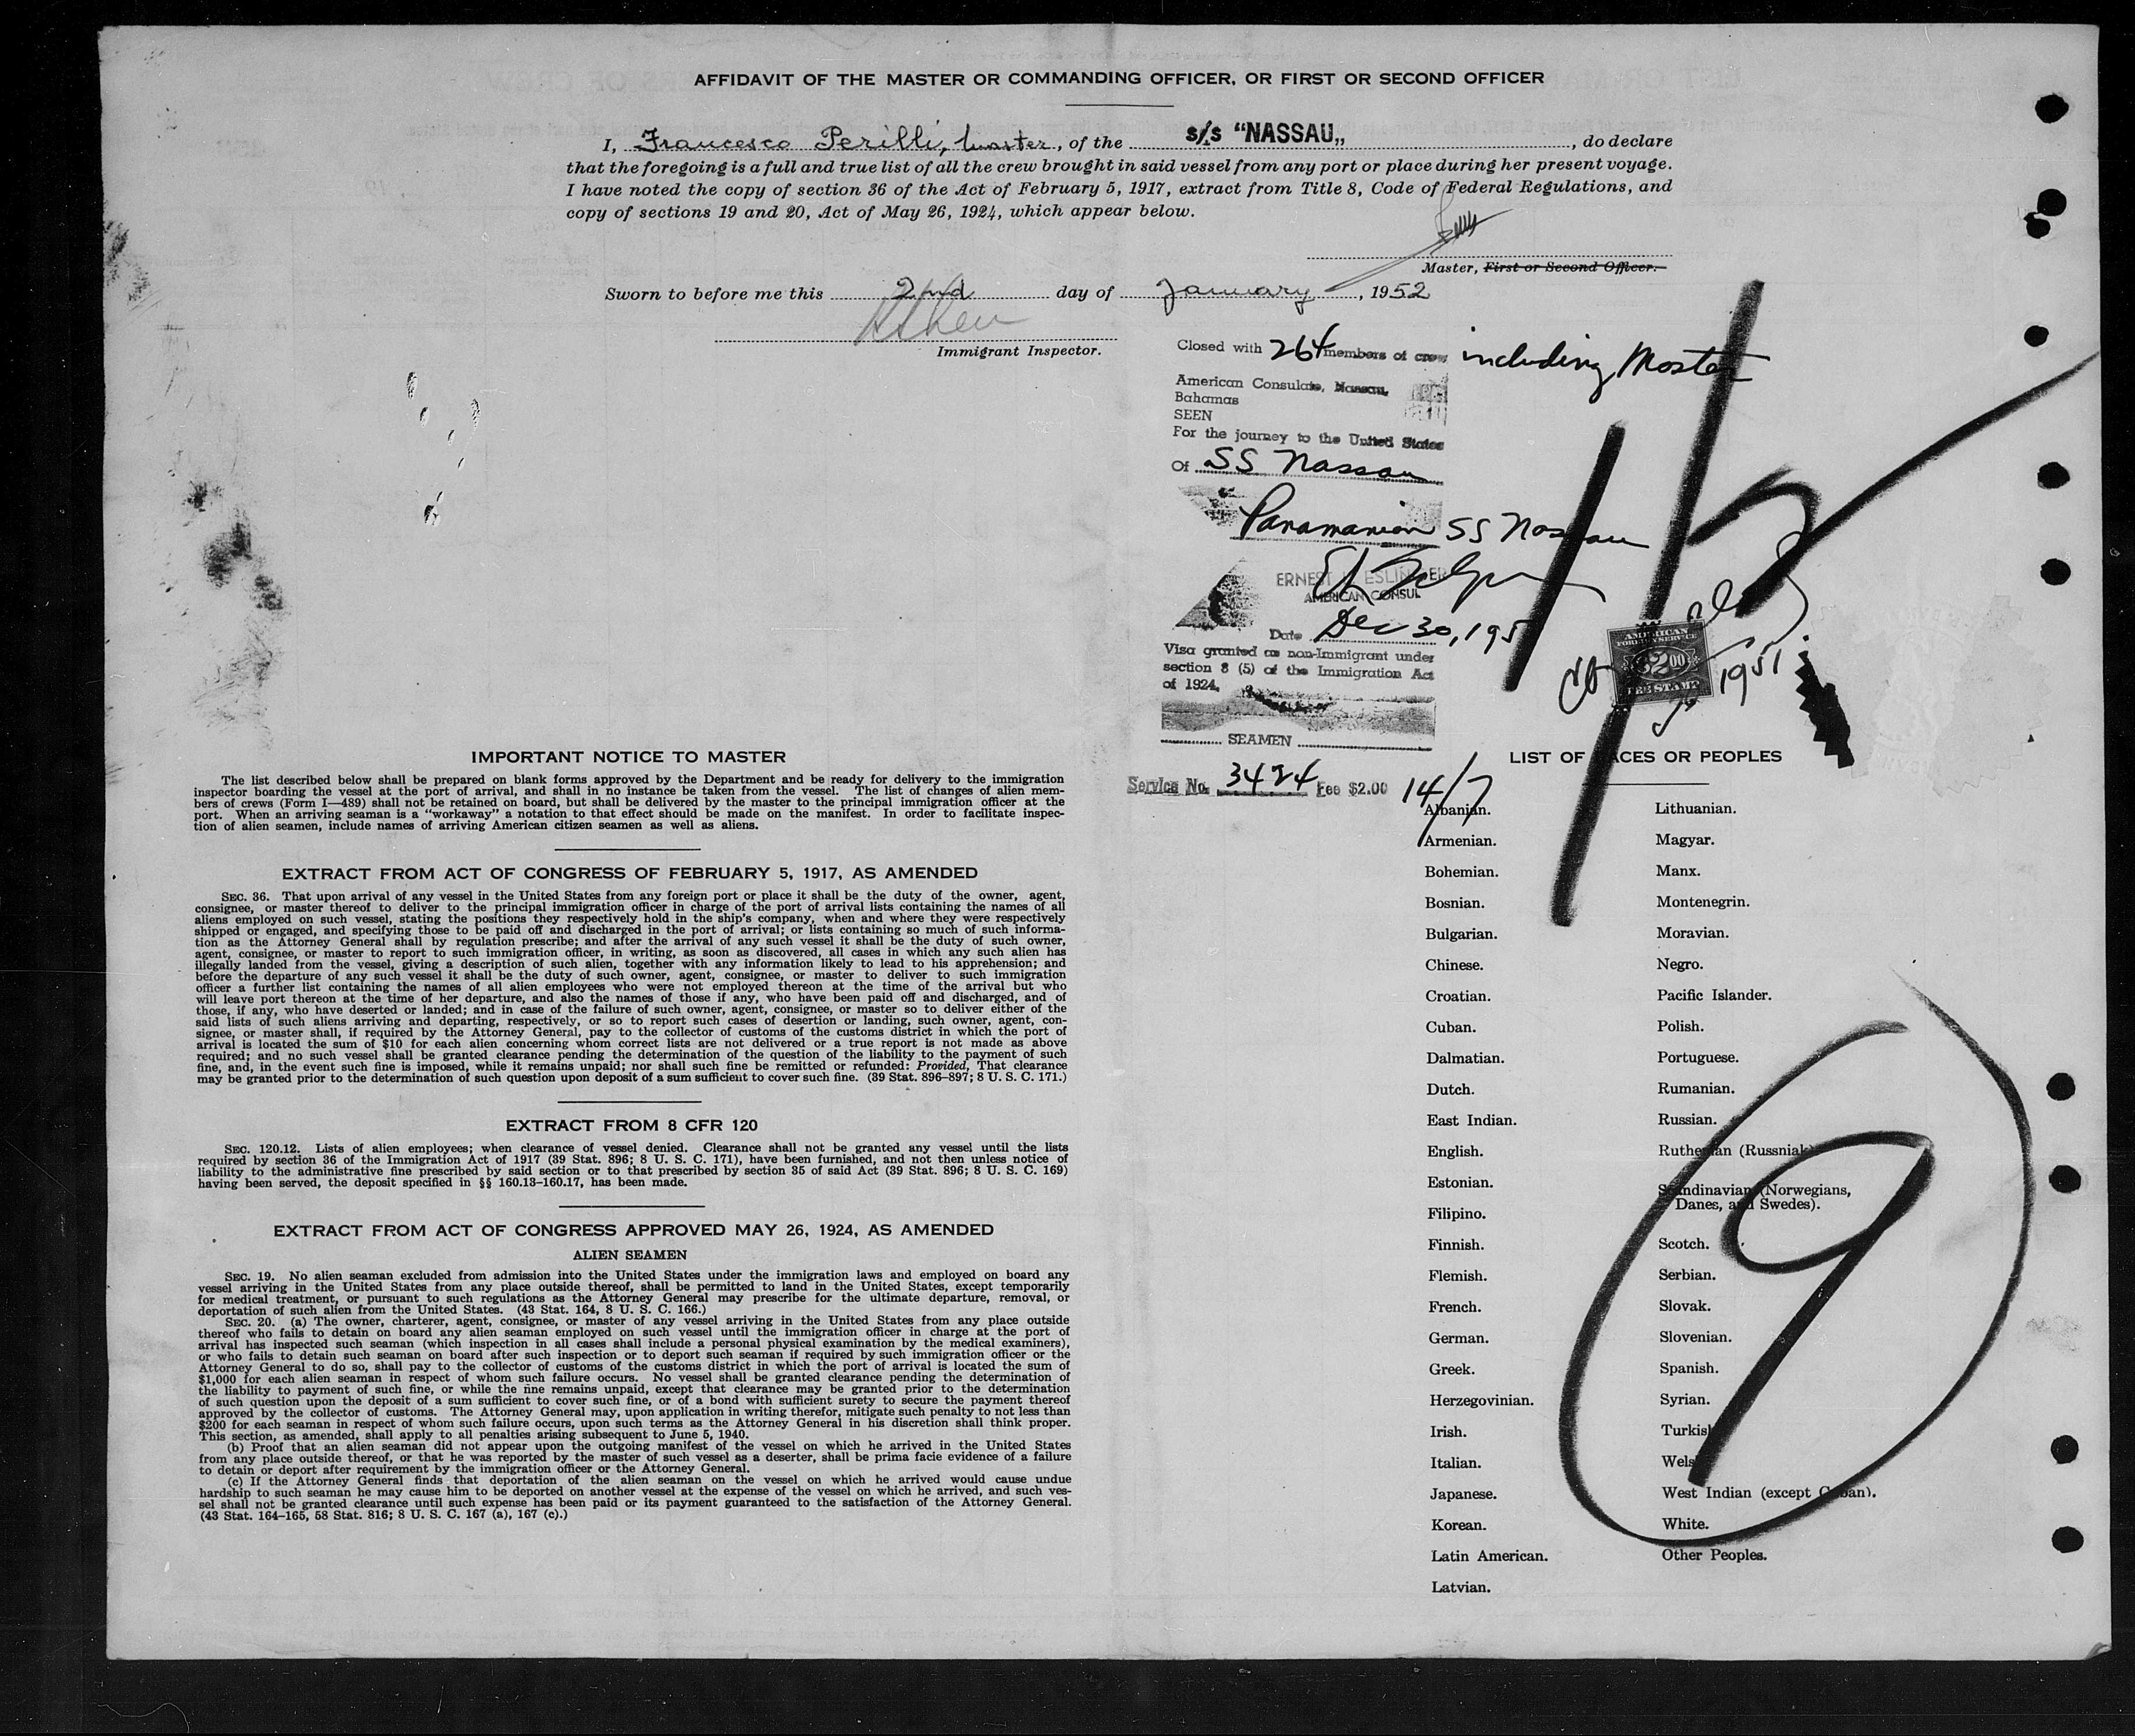 AFFIDAVIT OF THE MASTER OR COMMANDING OFFICER, OR FIRST OR SECOND OFFICER
I, Francesco Perilli, Master, of the s/s "NASSAU„, do declare
that the foregoing is a full and true list of all the crew brought in said vessel from any port or place during her present voyage.
I have noted the copy of section 36 of the Act of February 5, 1917, extract from Title 8, Code of Federal Regulations, and
copy of sections 19 and 20, Act of May 26, 1924, which appear below.
Master, First or Second Officer.
Sworn to before me this 2nd day of January, 1952
Immigrant Inspector.
Closed with 264 members of crew including Master
American Consulate, Nassau,
Bahamas
SEEN
For the journey to the United States
Of SS Nassau
Panamanian SS Nassau
ERNEST ESLINGER
AMERICAN CONSUL
Date Dec 30, 195
Visa granted as non-Immigrant under
section 3 (5) of the Immigration Act
of 1924.
SEAMEN
Service No. 3424 Fee $2.00
14/7
AMERICAN
FOREIGN SERVICE
$2.00
FEE STAMP
1951
1/2
IMPORTANT NOTICE TO MASTER
The list described below shall be prepared on blank forms approved by the Department and be ready for delivery to the immigration
inspector boarding the vessel at the port of arrival, and shall in no instance be taken from the vessel. The list of changes of alien mem-
bers of crews (Form I—489) shall not be retained on board, but shall be delivered by the master to the principal immigration officer at the
port. When an arriving seaman is a "workaway" a notation to that effect should be made on the manifest. In order to facilitate inspec-
tion of alien seamen, include names of arriving American citizen seamen as well as aliens.
EXTRACT FROM ACT OF CONGRESS OF FEBRUARY 5, 1917, AS AMENDED
SEC. 36. That upon arrival of any vessel in the United States from any foreign port or place it shall be the duty of the owner, agent,
consignee, or master thereof to deliver to the principal immigration officer in charge of the port of arrival lists containing the names of all
aliens employed on such vessel, stating the positions they respectively hold in the ship's company, when and where they were respectively
shipped or engaged, and specifying those to be paid off and discharged in the port of arrival; or lists containing so much of such informa-
tion as the Attorney General shall by regulation prescribe; and after the arrival of any such vessel it shall be the duty of such owner,
agent, consignee, or master to report to such immigration officer, in writing, as soon as discovered, all cases in which any such alien has
illegally landed from the vessel, giving a description of such alien, together with any information likely to lead to his apprehension; and
before the departure of any such vessel it shall be the duty of such owner, agent, consignee, or master to deliver to such immigration
officer a further list containing the names of all alien employees who were not employed thereon at the time of the arrival but who
will leave port thereon at the time of her departure, and also the names of those if any, who have been paid off and discharged, and of
those, if any, who have deserted or landed; and in case of the failure of such owner, agent, consignee, or master so to deliver either of the
said lists of such aliens arriving and departing, respectively, or so to report such cases of desertion or landing, such owner, agent, con-
signee, or master shall, if required by the Attorney General, pay to the collector of customs of the customs district in which the port of
arrival is located the sum of $10 for each alien concerning whom correct lists are not delivered or a true report is not made as above
required; and no such vessel shall be granted clearance pending the determination of the question of the liability to the payment of such
fine, and, in the event such fine is imposed, while it remains unpaid; nor shall such fine be remitted or refunded: Provided, That clearance
may be granted prior to the determination of such question upon deposit of a sum sufficient to cover such fine. (39 Stat. 896–897; 8 U. S. C. 171.)
EXTRACT FROM 8 CFR 120
SEC. 120.12. Lists of alien employees; when clearance of vessel denied. Clearance shall not be granted any vessel until the lists
required by section 36 of the Immigration Act of 1917 (39 Stat. 896; 8 U. S. C. 171), have been furnished, and not then unless notice of
liability to the administrative fine prescribed by said section or to that prescribed by section 35 of said Act (39 Stat. 896; 8 U. S. C. 169)
having been served, the deposit specified in §§ 160.13–160.17, has been made.
EXTRACT FROM ACT OF CONGRESS APPROVED MAY 26, 1924, AS AMENDED
ALIEN SEAMEN
SEC. 19. No alien seaman excluded from admission into the United States under the immigration laws and employed on board any
vessel arriving in the United States from any place outside thereof, shall be permitted to land in the United States, except temporarily
for medical treatment, or pursuant to such regulations as the Attorney General may prescribe for the ultimate departure, removal, or
deportation of such alien from the United States. (43 Stat. 164, 8 U. S. C. 166.)
SEC. 20. (a) The owner, charterer, agent, consignee, or master of any vessel arriving in the United States from any place outside
thereof who fails to detain on board any alien seaman employed on such vessel until the immigration officer in charge at the port of
arrival has inspected such seaman (which inspection in all cases shall include a personal physical examination by the medical examiners),
or who fails to detain such seaman on board after such inspection or to deport such seaman if required by such immigration officer or the
Attorney General to do so, shall pay to the collector of customs of the customs district in which the port of arrival is located the sum of
$1,000 for each alien seaman in respect of whom such failure occurs. No vessel shall be granted clearance pending the determination of
the liability to payment of such fine, or while the fine remains unpaid, except that clearance may be granted prior to the determination
of such question upon the deposit of a sum sufficient to cover such fine, or of a bond with sufficient surety to secure the payment thereof
approved by the collector of customs. The Attorney General may, upon application in writing therefor, mitigate such penalty to not less than
$200 for each seaman in respect of whom such failure occurs, upon such terms as the Attorney General in his discretion shall think proper.
This section, as amended, shall apply to all penalties arising subsequent to June 5, 1940.
(b) Proof that an alien seaman did not appear upon the outgoing manifest of the vessel on which he arrived in the United States
from any place outside thereof, or that he was reported by the master of such vessel as a deserter, shall be prima facie evidence of a failure
to detain or deport after requirement by the immigration officer or the Attorney General.
(c) If the Attorney General finds that deportation of the alien seaman on the vessel on which he arrived would cause undue
hardship to such seaman he may cause him to be deported on another vessel at the expense of the vessel on which he arrived, and such ves-
sel shall not be granted clearance until such expense has been paid or its payment guaranteed to the satisfaction of the Attorney General.
(43 Stat. 164–165, 58 Stat. 816; 8 U. S. C. 167 (a), 167 (c).)
LIST OF RACES OR PEOPLES
Albanian.
Armenian.
Bohemian.
Bosnian.
Bulgarian.
Chinese.
Croatian.
Cuban.
Dalmatian.
Dutch.
East Indian.
English.
Estonian.
Filipino.
Finnish.
Flemish.
French.
German.
Greek.
Herzegovinian.
Irish.
Italian.
Japanese.
Korean.
Latin American.
Latvian.
Lithuanian.
Magyar.
Manx.
Montenegrin.
Moravian.
Negro.
Pacific Islander.
Polish.
Portuguese.
Rumanian.
Russian.
Ruthenian (Russniak).
Scandinavian (Norwegians,
Danes, and Swedes).
Scotch.
Serbian.
Slovak.
Slovenian.
Spanish.
Syrian.
Turkish.
Welsh.
West Indian (except Cuban).
White.
Other Peoples.
9